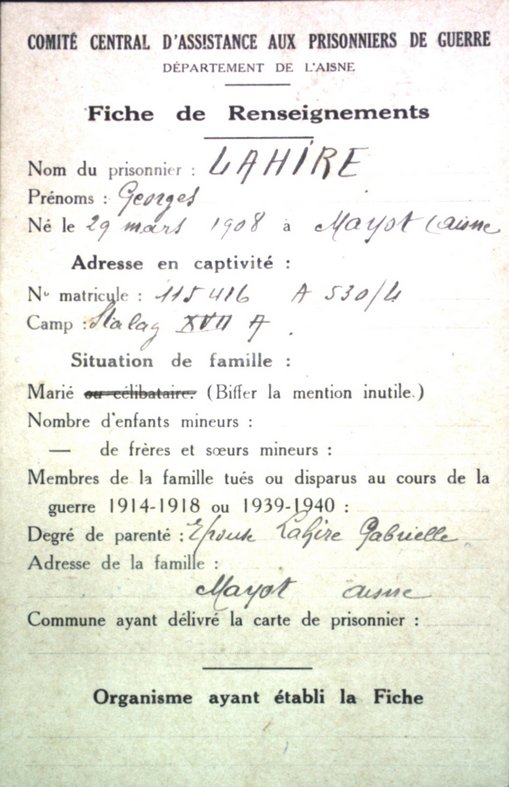 COMITÉ CENTRAL D'ASSISTANCE AUX PRISONNIERS DE GUERRE
DÉPARTEMENT DE L'AISNE
Fiche de Renseignements
Nom du prisonnier : LAHIRE
Prénoms : Georges
Né le 29 mars 1908 à Mayot (aisne
Adresse en captivité :
No matricule : 115416 A 530/4
Camp : Stalag XVII A.
Situation de famille :
Marié ou célibataire. (Biffer la mention inutile.)
Nombre d'enfants mineurs :
— de frères et sœurs mineurs :
Membres de la famille tués ou disparus au cours de la
guerre 1914-1918 ou 1939-1940 :
Degré de parenté : Epouse Lahire Gabrielle
Adresse de la famille :
Mayot aisne
Commune ayant délivré la carte de prisonnier :
Organisme ayant établi la Fiche